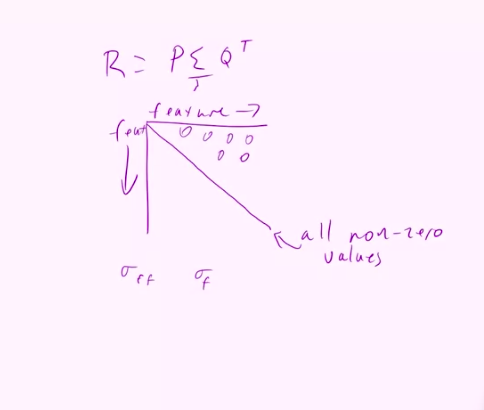 R = PΣQᵀ
feature →
feat
0 0 0 0
0 0
all non-zero
values
σff σf